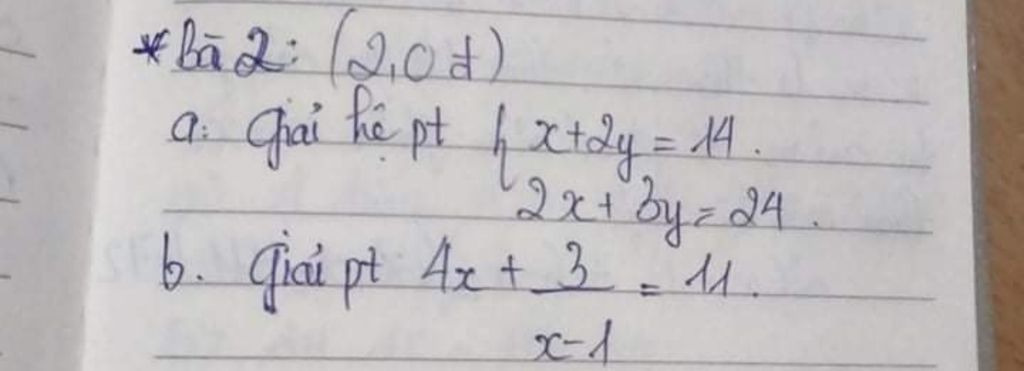 * Bài 2: (2,0 đ)
a. Giải hệ pt { x+2y = 14.
2x + 3y = 24.
b. Giải pt 4x + 3/(x-1) = 11.